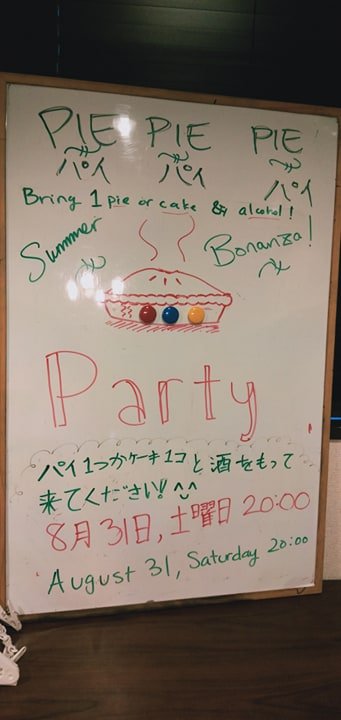 PIE PIE PIE
パイ パイ パイ
Bring 1 pie or cake & alcohol!
Summer Bonanza!
Party
パイ1つかケーキ1コと酒をもって
来てください! ^^
8月31日, 土曜日 20:00
August 31, Saturday 20:00